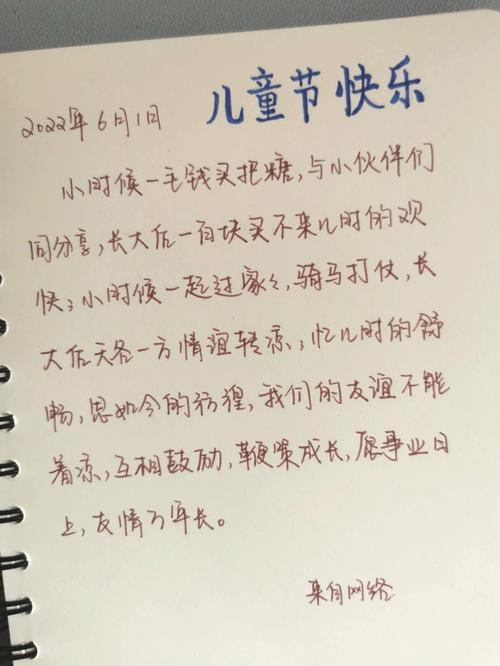 儿童节快乐
2022年6月1日
小时候一毛钱买把糖,与小伙伴们
同分享,长大后一百块买不来儿时的欢
快;小时候一起过家々,骑马打仗,长
大后天各一方情谊转凉;忆儿时的舒
畅,思如今的彷徨,我们的友谊不能
着凉,互相鼓励,鞭策成长,愿事业日
上,友情万年长。
来自网络